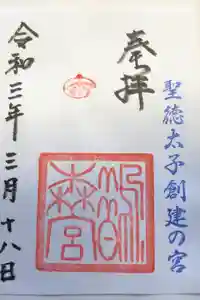 聖徳太子創建の宮
奉拝
鵲
森宮
令和三年三月十八日